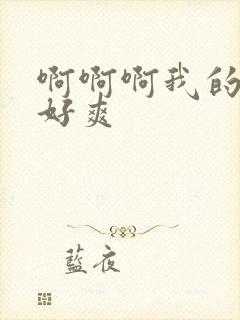 啊啊啊我的
好爽
藍夜